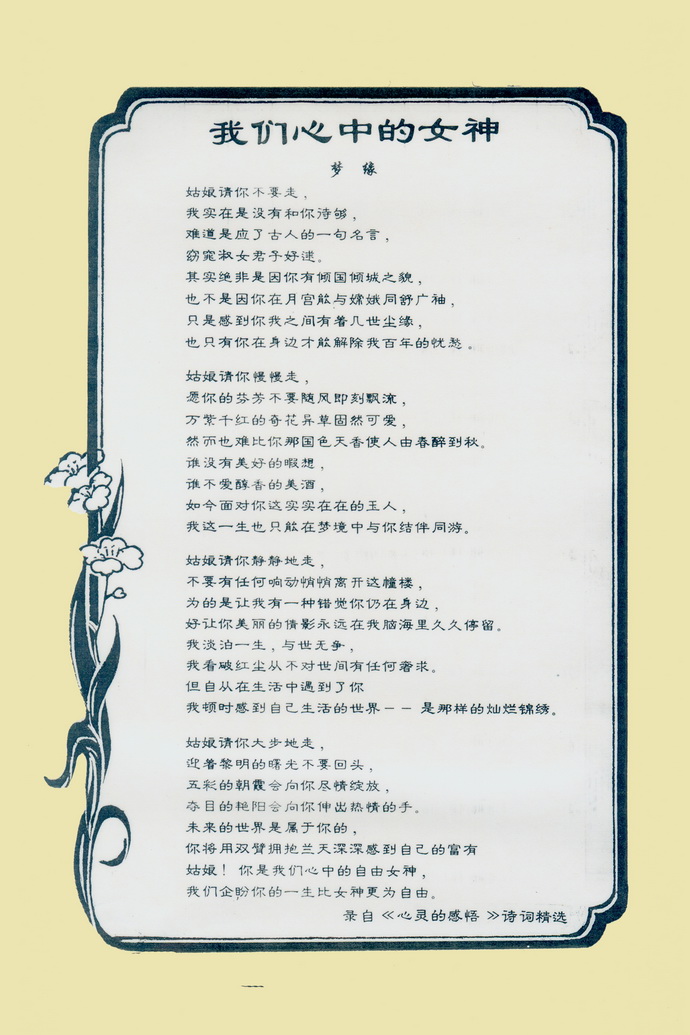 我们心中的女神
梦 缘
姑娘请你不要走，
我实在是没有和你待够，
难道是应了古人的一句名言，
窈窕淑女君子好逑。
其实绝非是因你有倾国倾城之貌，
也不是因你在月宫能与嫦娥同舒广袖，
只是感到你我之间有着几世尘缘，
也只有你在身边才能解除我百年的忧愁。
姑娘请你慢慢走，
愿你的芬芳不要随风即刻飘流，
万紫千红的奇花异草固然可爱，
然而也难比你那国色天香使人由春醉到秋。
谁没有美好的暇想，
谁不爱醇香的美酒，
如今面对你这实实在在的玉人，
我这一生也只能在梦境中与你结伴同游。
姑娘请你静静地走，
不要有任何响动悄悄离开这幢楼，
为的是让我有一种错觉你仍在身边，
好让你美丽的倩影永远在我脑海里久久停留。
我淡泊一生，与世无争，
我看破红尘从不对世间有任何奢求。
但自从在生活中遇到了你
我顿时感到自己生活的世界－－ 是那样的灿烂锦绣。
姑娘请你大步地走，
迎着黎明的曙光不要回头，
五彩的朝霞会向你尽情绽放，
夺目的艳阳会向你伸出热情的手。
未来的世界是属于你的，
你将用双臂拥抱兰天深深感到自己的富有
姑娘！你是我们心中的自由女神，
我们企盼你的一生比女神更为自由。
录自《心灵的感悟》诗词精选